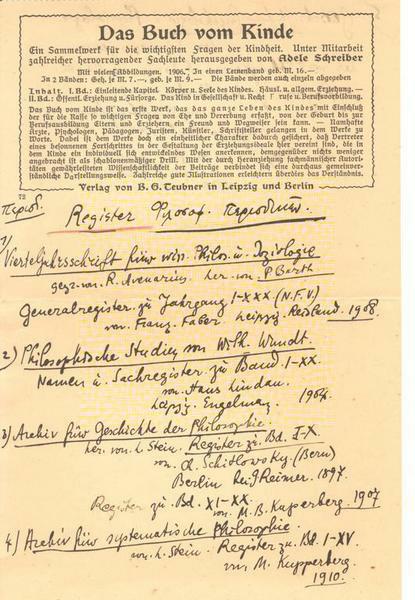 Das Buch vom Kinde
Ein Sammelwerk für die wichtigsten Fragen der Kindheit. Unter Mitarbeit
zahlreicher hervorragender Fachleute herausgegeben von Adele Schreiber
Mit vielen Abbildungen. 1906. In einen Leinenband geb. M. 16.—
In 2 Bänden: Geh. je M. 7.—, geb. je M. 9.— Die Bände auch einzeln abgegeben
Inhalt. I. Bd.: Einleitende Kapitel. Körper u. Seele des Kindes. Häusl. u. allgem. Erziehung.—
II. Bd.: Öffentl. Erziehung u. Fürsorge. Das Kind in Gesellschaft u. Recht. Berufe u. Berufsbildung.
Das Buch vom Kinde will als erste Werk, das das ganze Leben des Kindes mit Einschluß
der für die Rasse so wichtigen Fragen von Ehe und Vererbung erfaßt, von der Geburt bis zur
Berufsausbildung Eltern und Erziehern, ein Freund und Wegweiser sein kann. — Namhafte
Ärzte, Psychologen, Pädagogen, Juristen, Künstler, Schriftsteller gelangen in dem Werke zu
Worte. Dabei ist dem Werke doch ein einheitlicher Charakter dadurch gesichert, daß Vertreter
eines besonnenen Fortschrittes in der Gestaltung der Erziehungsideale hier vereint sind, die in
dem Kinde ein individuell sich entwickelndes Wesen anerkennen, demgegenüber nichts weniger
angebracht ist als schablonenmäßiger Drill. Mit der durch Heranziehung fachmännischer Autori-
täten gewährleisteten Wissenschaftlichkeit der Beiträge verbindet sich eine durchaus gemeinver-
ständliche Darstellungsweise. Zahlreiche gute Illustrationen erleichtern überdies das Verständnis.
Verlag von B. G. Teubner in Leipzig und Berlin
72
Період.
Register Філософ. періодичн.
1) Vierteljahrsschrift für wiss. Philos. u. Soziologie
gegr. von R. Avenarius her. von P. Barth
Generalregister zu Jahrgang I-XXX (N.F.V)
von Franz Faber Leipzig Reisland. 1908.
2) Philosophische Studien von Wilh. Wundt.
Namen u. Sachregister zu Band I-XX.
von Hans Lindau.
Leipzig Engelmann 1904.
3) Archiv für Geschichte der Philosophie.
her. von L. Stein. Register zu Bd. I-X
von Ch. Schitlowsky (Bern)
Berlin bei G Reimer. 1897.
Register zu Bd. XI-XX.
von M. B. Kupperberg. 1907
4) Archiv für systematische Philosophie.
von L. Stein. Register zu Bd. I-XV
von M. Kupperberg.
1910.